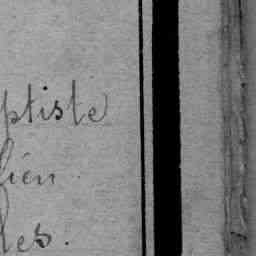 ptiste
lien
les.